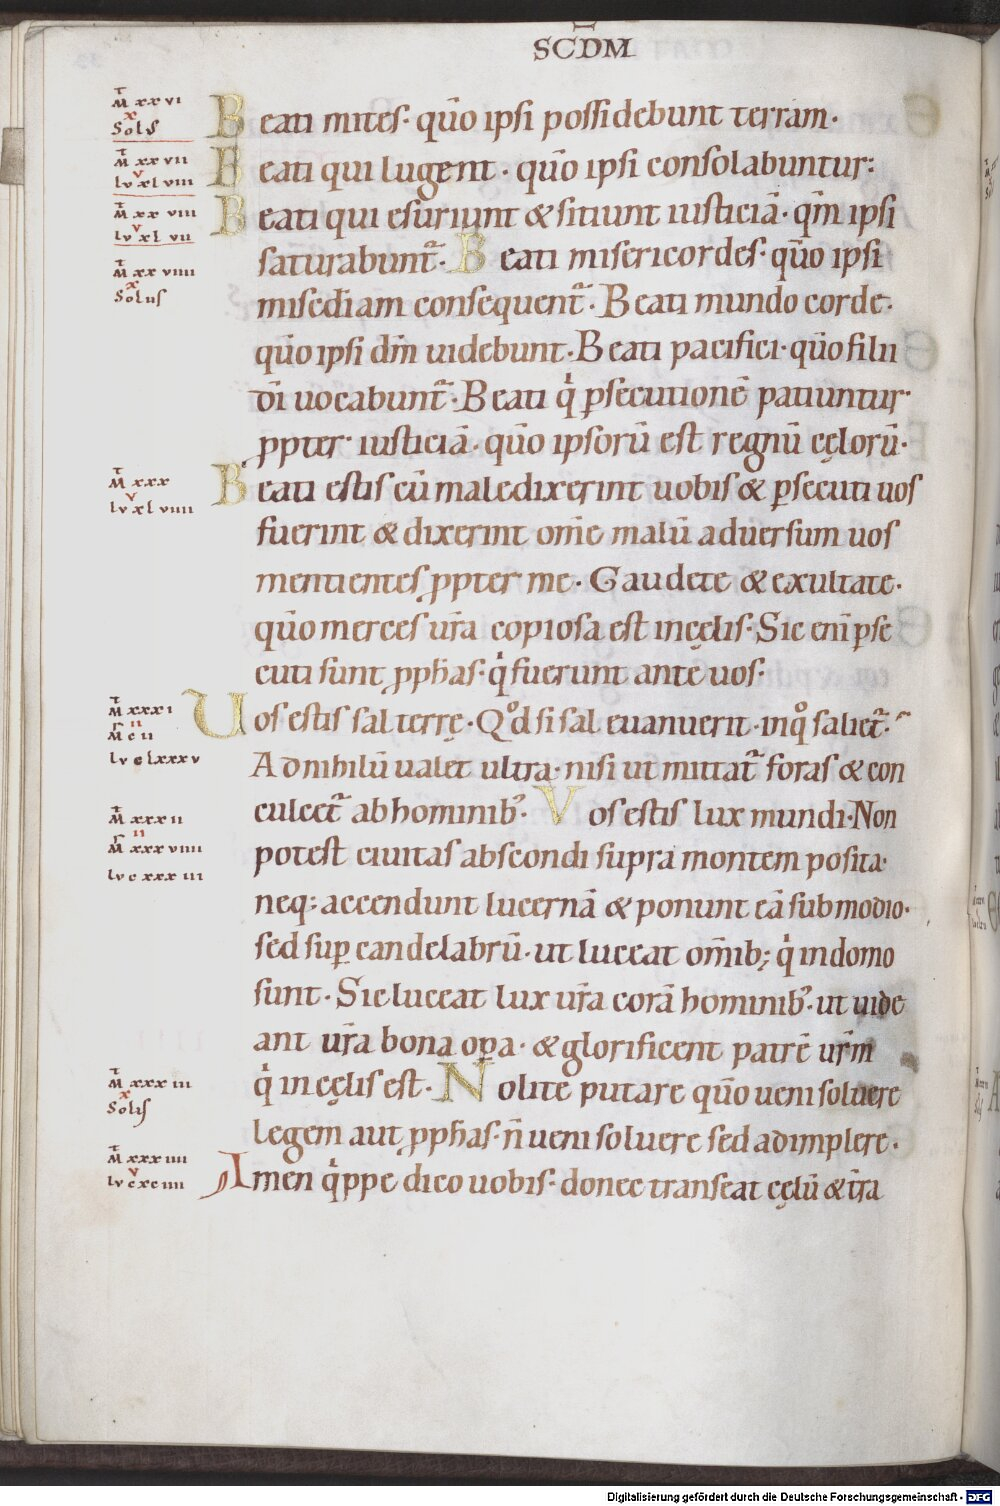 SCDM
M̄ xxvi
x
Solus
Beati mites· qūo ipsi possidebunt terram·
M̄ xxvii
v
lu xlviii
Beati qui lugent· qūo ipsi consolabuntur:
M̄ xxviii
v
lu xlvii
Beati qui esuriunt & sitiunt iusticiā· qm̄ ipsi
saturabunt᷑· Beati misericordes· qūo ipsi
M̄ xxviiii
x
Solus
misedīam consequent᷑· Beati mundo corde·
qūo ipsi dm̄ uidebunt· Beati pacifici· qūo filii
dī uocabunt᷑· Beati qͥ ꝑsecutionē patiuntur
ꝓpter iusticiā· qūo ipsorū est regnū cęlorū·
M̄ xxx
v
lu xlviiii
Beati estis cū maledixerint uobis & ꝑsecuti uos
fuerint & dixerint om̄e malū aduersum uos
mentientes ꝓpter me· Gaudete & exultate·
qūo merces ur̄a copiosa est in cęlis· Sic eni̅ ꝑse
cuti sunt ꝓph̄as· qͥ fuerunt ante uos·
M̄ xxxi
ii
M̄ cii
lu clxxxv
Uos estis sal terrę· Qͦd si sal euanuerit· inqͦ saliet᷑·
Ad nihilū ualet ultra· nisi ut mittat᷑ foras & con
culcet᷑ ab hominibꝰ· Vos estis lux mundi· Non
M̄ xxxii
ii
M̄ xxxviiii
lu cxxxiii
potest ciuitas abscondi supra montem posita·
neq: accendunt lucernā & ponunt eā sub modio·
sed suꝑ candelabrū· ut luceat om̄ib; qͥ in domo
sunt· Sic luceat lux ur̄a corā hominibꝰ· ut uide
ant ur̄a bona oꝑa· & glorificent patrē ur̄m
M̄ xxxiii
x
Solus
qͥ in cęlis est· Nolite putare qūo ueni soluere
legem aut ꝓph̄as· n̄ ueni soluere sed adimplere·
M̄ xxxiiii
v
lu cxciiii
Amen qͥppe dico uobis· donec transeat cęlū & tr̄a
Digitalisierung gefördert durch die Deutsche Forschungsgemeinschaft - DFG